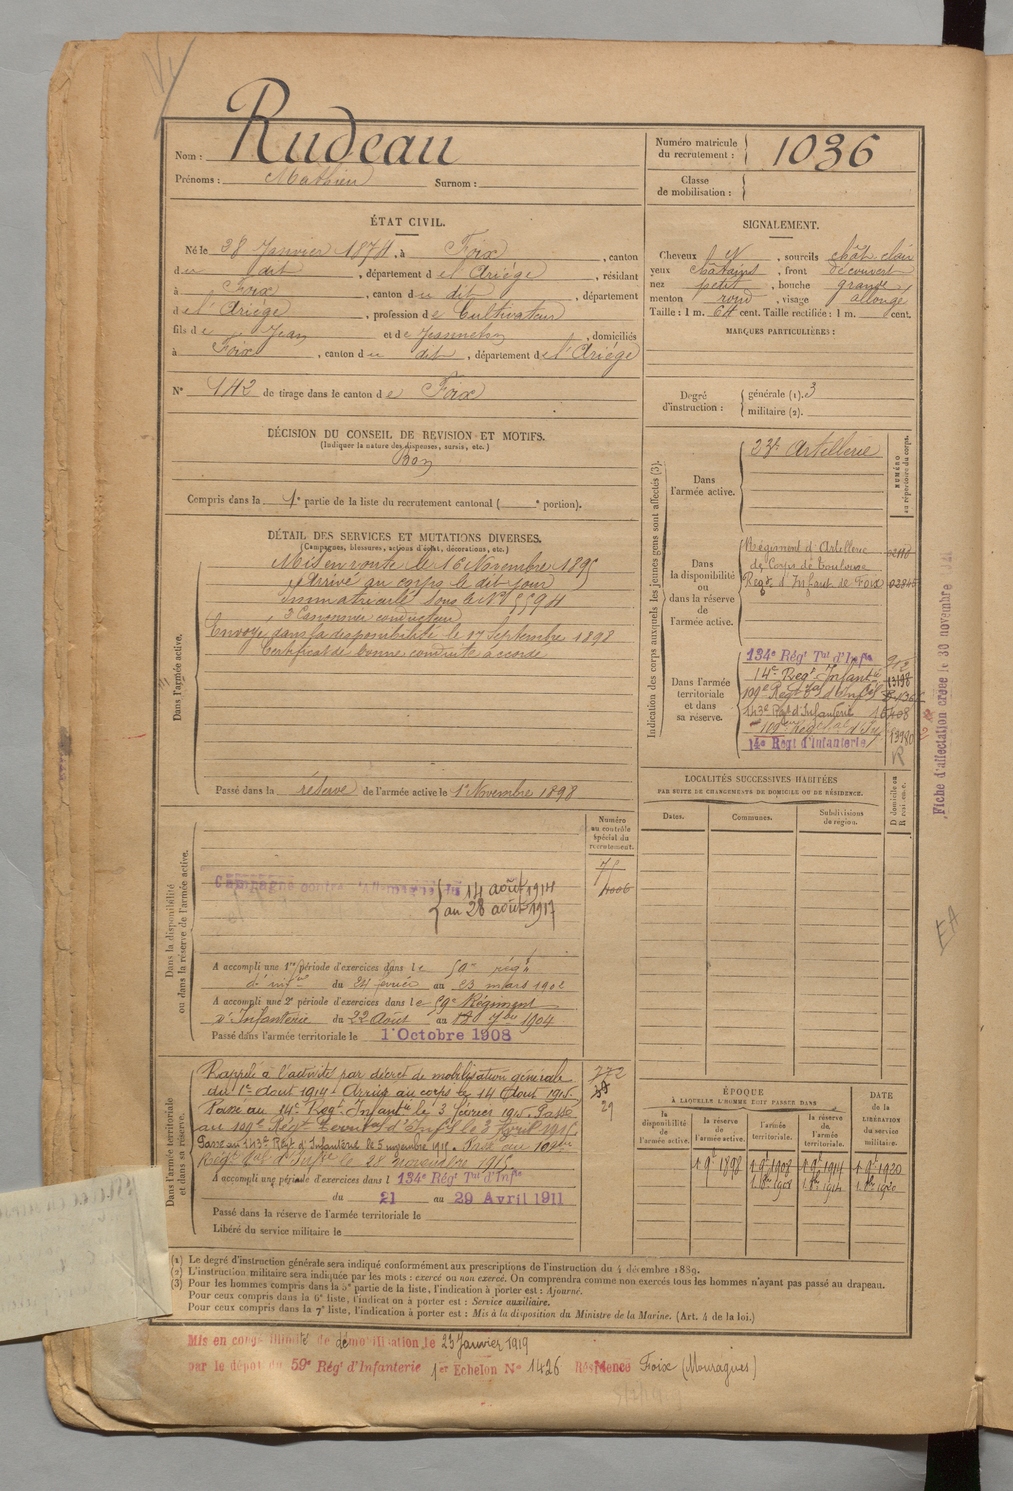 Nom : Rudeau
Prénoms : Mathieu Surnom :
Numéro matricule du recrutement : 1036
Classe de mobilisation :
ÉTAT CIVIL.
Né le 28 Janvier 1874, à Foix, canton
du dit, département de l'Ariége, résidant
à Foix, canton du dit, département
de l'Ariége, profession de Cultivateur
fils de Jean et de Jeanneton, domiciliés
à Foix, canton du dit, département de l'Ariége
N° 142 de tirage dans le canton de Foix
DÉCISION DU CONSEIL DE REVISION ET MOTIFS.
(Indiquer la nature des dispenses, sursis, etc.)
Bon
Compris dans la 1e partie de la liste du recrutement cantonal ( e portion).
DÉTAIL DES SERVICES ET MUTATIONS DIVERSES.
(Campagnes, blessures, actions d'éclat, décorations, etc.)
Dans l'armée active.
Mis en route le 16 Novembre 1895
Arrivé au corps le dit jour
Immatriculé sous le N° 5594
2e Canonnier conducteur
Envoyé dans la disponibilité le 17 Septembre 1898
Certificat de bonne conduite accordé
Passé dans la réserve de l'armée active le 1er Novembre 1898
SIGNALEMENT.
Cheveux N, sourcils chât clair
yeux chatains, front découvert
nez petit, bouche grande
menton rond, visage allongé
Taille : 1 m. 64 cent. Taille rectifiée : 1 m. cent.
MARQUES PARTICULIÈRES :
Degré d'instruction :
générale (1). 3
militaire (2).
Indication des corps auxquels les jeunes gens sont affectés (3).
NUMÉRO au répertoire du corps.
Dans l'armée active.
23e Artillerie
Dans la disponibilité ou dans la réserve de l'armée active.
Régiment d'Artillerie
de Corps de Toulouse
Regt d'Infant de Foix
Dans l'armée territoriale et dans sa réserve.
134e Régt Tal d'Infie 912
14e Regt Infantie 13198
109e Regt Tal d'Infie
143e Rgt d'Infanterie
109e Regt Tal d'Inf
14e Régt d'Infanterie 13980
R
Fiche d'affectation créée le 30 novembre 1921
EA
LOCALITÉS SUCCESSIVES HABITÉES
PAR SUITE DE CHANGEMENTS DE DOMICILE OU DE RÉSIDENCE.
Dates. Communes. Subdivisions de région. D domicile ou R résidence.
Dans la disponibilité ou dans la réserve de l'armée active.
Numéro au contrôle spécial du recrutement.
Campagne contre l'Allemagne du 14 août 1914
au 28 août 1917
A accompli une 1re période d'exercices dans le 59me régt
d'infie du 24 février au 23 mars 1902
A accompli une 2e période d'exercices dans le 59e Régiment
d'Infanterie du 22 Août au 18 7bre 1904
Passé dans l'armée territoriale le 1 Octobre 1908
Dans l'armée territoriale et dans sa réserve.
272
29
Rappelé à l'activité par décret de mobilisation générale
du 1er Aout 1914. Arrivé au corps le 14 Aout 1914.
Passé au 14e Régt Infantie le 3 février 1915. Passé
au 109e Régt Territal d'Infie le 3 Avril 1915.
Passé au 143e Régt d'Infanterie le 5 novembre 1915. Passé au 109me
Régt Tal d'Infie le 28 novembre 1915
A accompli une période d'exercices dans l 134e Régt Tal d'Infie
du 21 au 29 Avril 1911
Passé dans la réserve de l'armée territoriale le
Libéré du service militaire le
ÉPOQUE
À LAQUELLE L'HOMME DOIT PASSER DANS
la disponibilité de l'armée active.
la réserve de l'armée active.
l'armée territoriale.
la réserve de l'armée territoriale.
DATE de la LIBÉRATION du service militaire.
1 9e 1898 1 9e 1908 1 9e 1914 1 9e 1920
1 8re 1908 1 8re 1914 1 8re 1920
(1) Le degré d'instruction générale sera indiqué conformément aux prescriptions de l'instruction du 4 décembre 1889.
(2) L'instruction militaire sera indiquée par les mots : exercé ou non exercé. On comprendra comme non exercés tous les hommes n'ayant pas passé au drapeau.
(3) Pour les hommes compris dans la 5e partie de la liste, l'indication à porter est : Ajourné.
Pour ceux compris dans la 6e liste, l'indication à porter est : Service auxiliaire.
Pour ceux compris dans la 7e liste, l'indication à porter est : Mis à la disposition du Ministre de la Marine. (Art. 4 de la loi.)
Mis en congé illimité de démobilisation le 23 Janvier 1919
par le dépôt du 59e Régt d'Infanterie 1er Echelon N° 1426 Résidence Foix (Mouragues)